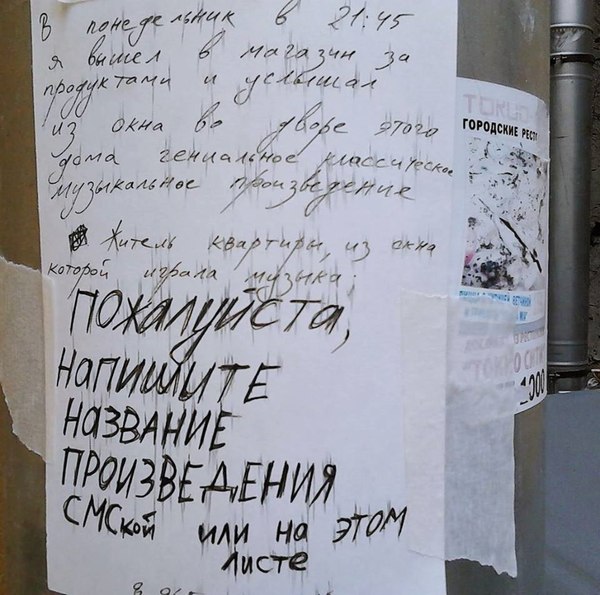 В понедельник в 21:45
я вышел в магазин за
продуктами и услышал
из окна во дворе этого
дома гениальное классическое
музыкальное произведение
Житель квартиры, из окна
которой играла музыка:
ПОЖАЛУЙСТА,
НАПИШИТЕ
НАЗВАНИЕ
ПРОИЗВЕДЕНИЯ
СМСкой или на этом
листе
ГОРОДСКИЕ РЕСТ
ТОКИО СИТИ
1000